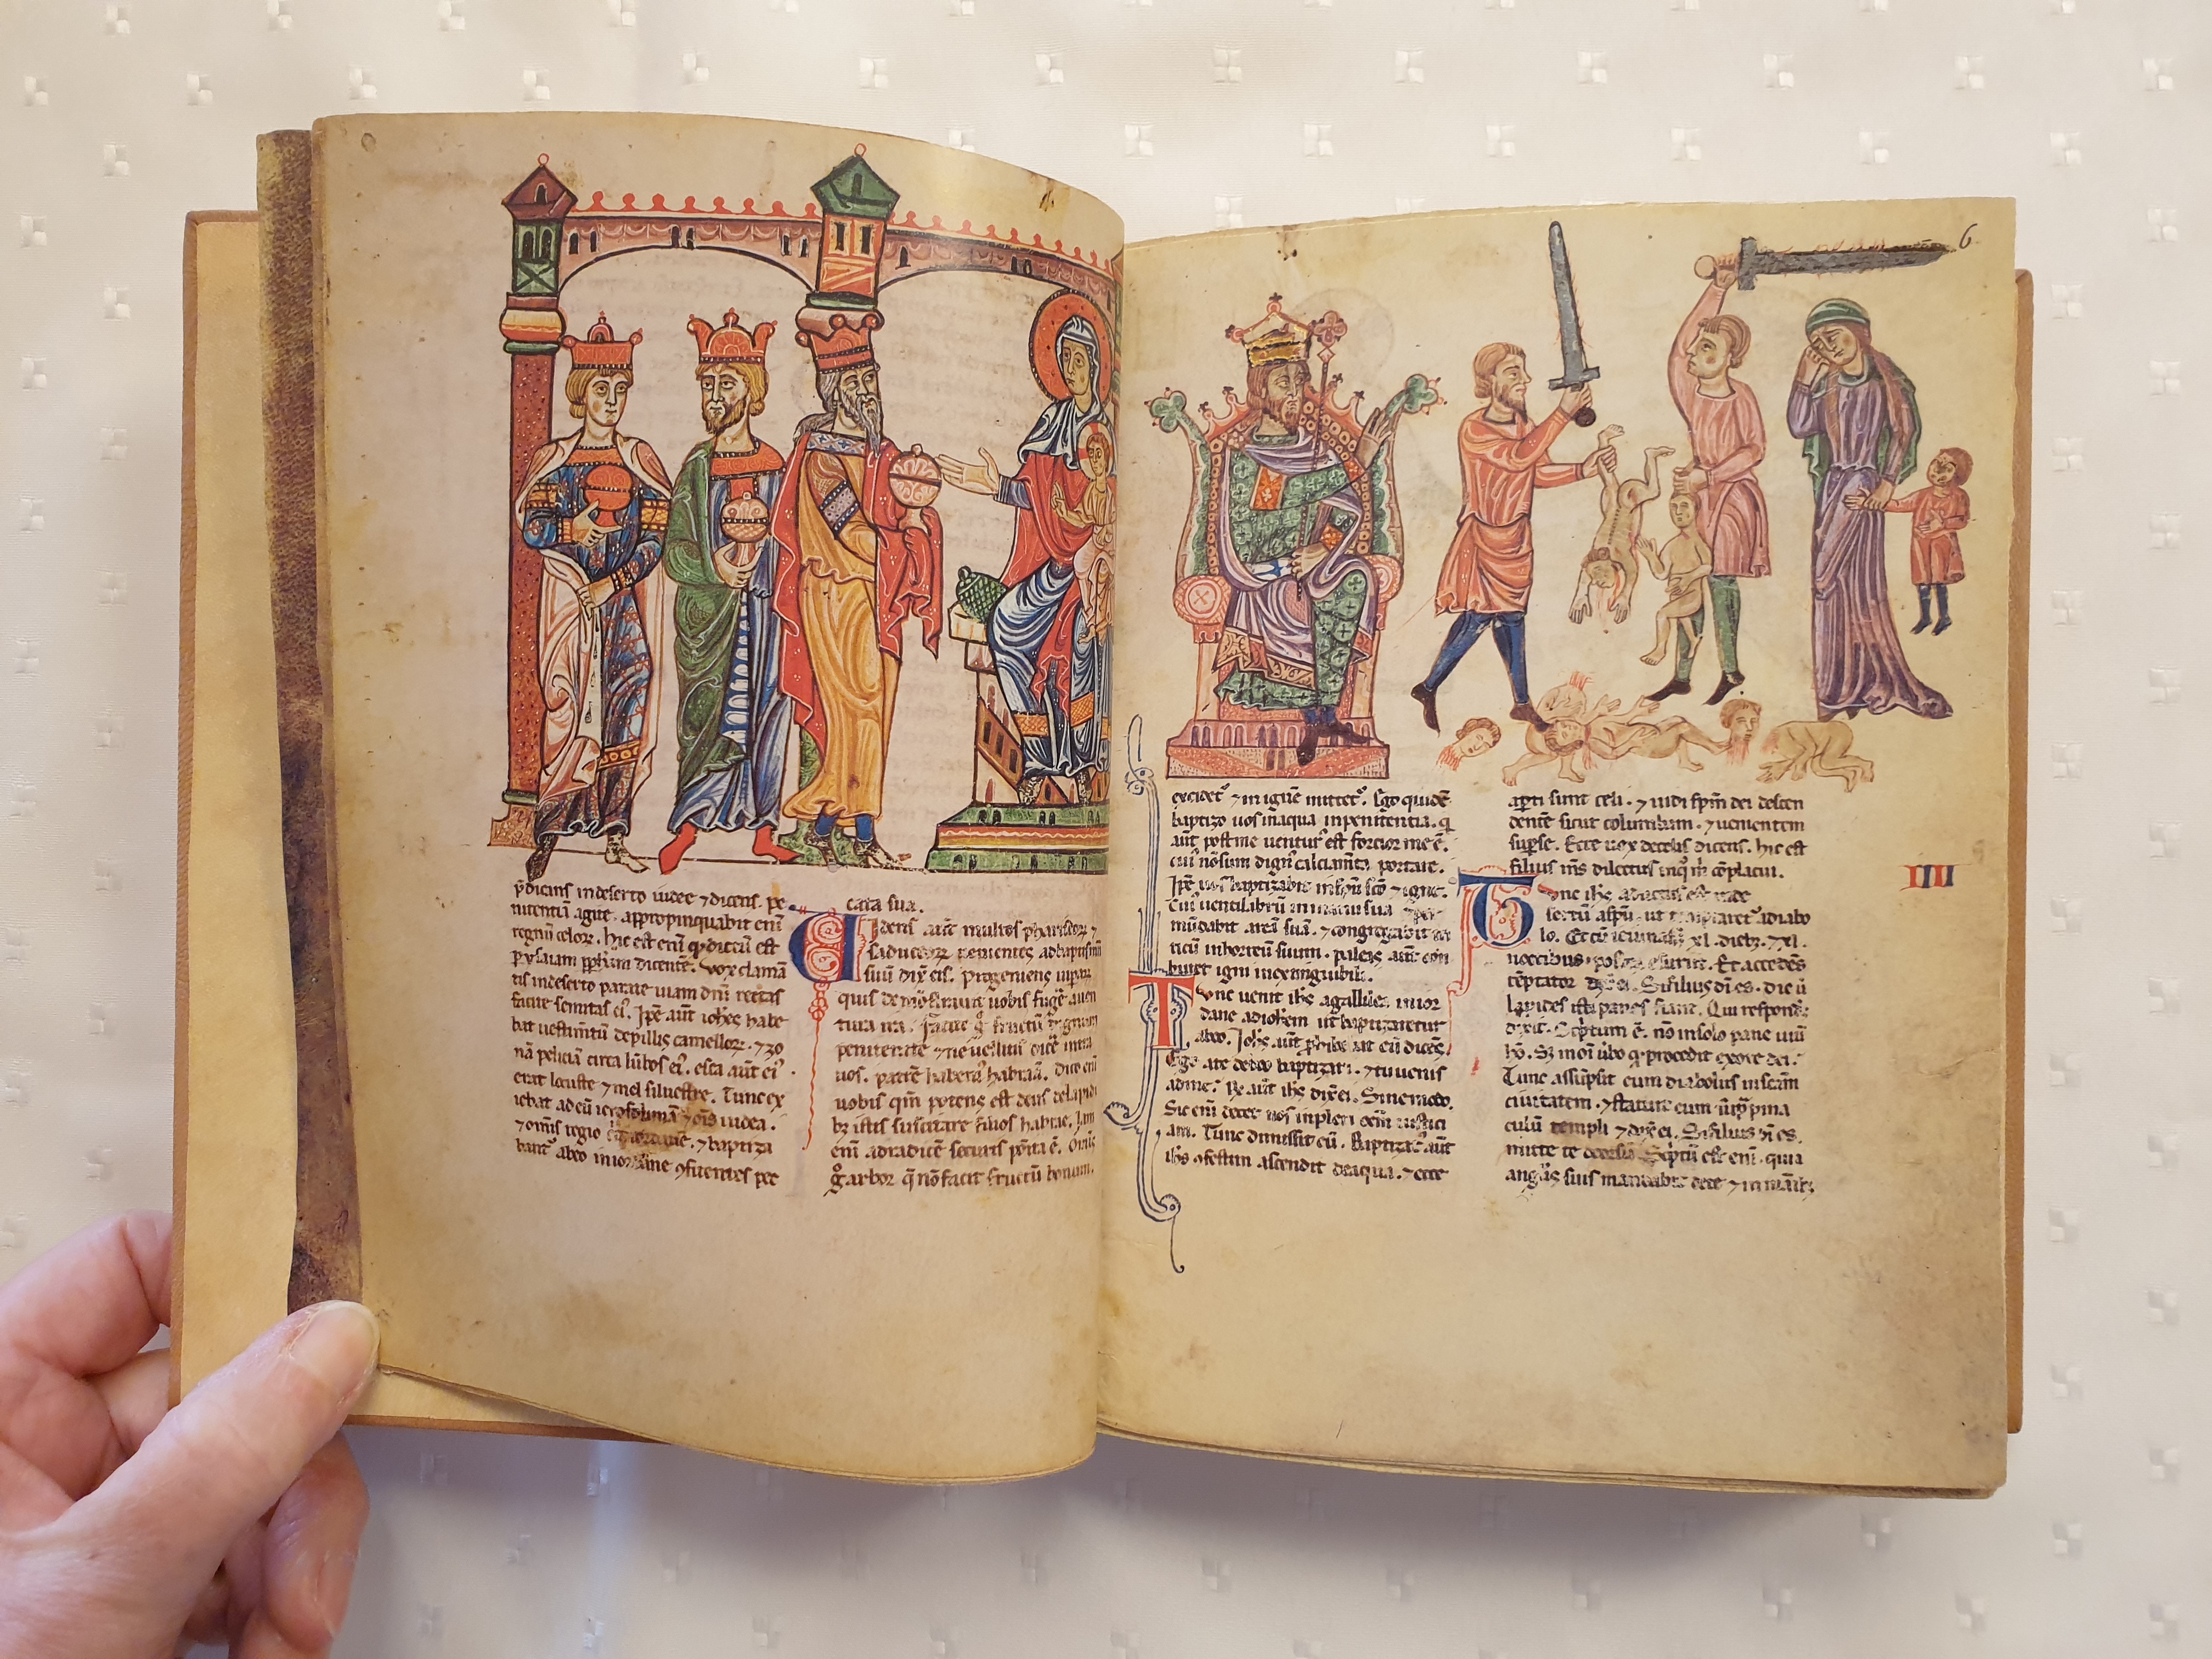 p̄dicans in deserto iudee ⁊ dicens. pe
nitentiā agite. appropinquabit enī
regnū celorꝝ. hic est enī q̄ dictū est
p ysaiam pphām dicentē. vox clamā
tis in deserto parate uiam dn̄i rectas
facite semitas ei᾽. Ipe aūt iohes habe
bat uestimtū de pillis camellorꝝ. ⁊ zo
nā peliciā circa lūbos ei᾽. esca aūt ei᾽
erat locuste ⁊ mel siluestre. Tunc ex
iebat ad eū ierosolimā ⁊ om̄s iudea.
⁊ omis regio ⁊ baptiza
bant᾽ ab eo in iordane ꝯfitentes pec
cata sua.
Uidens aūt multos phariseorꝝ ⁊
saduceorꝝ uenientes ad baptismū
suū dix̄ eis. Progenies uipar
quis demōstrauit uobis fugē a uen
tura ira. Facite g̊ fructū dignum
penitentie ⁊ ne uelitis dicē intra
uos. patrē habem᾽ habraā. Dico enī
uobis qm̄ potens est deus de lapidi
bꝫ istis suscitare filios habrae. Iam
enī ad radicē securis posita ē. Omīs
g̊ arbor q̄ nō facit fructū bonum.
6
excidet᾽ ⁊ in ignē mittet᾽. Ego quidē
baptizo uos in aqua in penitentia. q
aūt post me uentur᾽ est forcior me ē.
cui᾽ nō sum dign᾽ calciamta portare.
Ipe uos baptizabit in spū sc̄o ⁊ igne.
Cui᾽ uentilabrū in manu sua
mūdabit areā suā. ⁊ congregabit
ticū in horreū suum. paleas aūt con
buret igni inextinguibili.
Tunc uenit ihs a galilea in ior
dane ad iohem ut baptizaretur
ab eo. Iohs aūt phibebat eū dicens.
Ego a te debeo baptizari. ⁊ tu uenis
ad me? Rx̄ aūt ihs dix̄ ei. Sine modo.
Sic enī decet nos inpleri oēm iustici
am. Tunc dimissit eū. Baptizat᾽ aūt
ihs ꝯfestim ascendit de aqua. ⁊ ecce
aperti sunt celi. ⁊ uidi spm̄ dei descen
dentē sicut columbam. ⁊ uenientem
sup se. Ecce uox de celis dicens. hic est
filius m̄s dilectus in q᾽ m̄ cōplacui.
Tunc ihs ductus est in de
sertū a spū. ut temptaret᾽ a diabo
lo. Et cū ieiunasset xl. diebꝫ. ⁊ xl.
noctibus. postea esuriit. Et accedēs
tēptator dix̄ ei. Si filius di es. dic ū
lapides isti panes fiant. Qui respondēs
dixit. Scptum ē. nō in solo pane uiuit
hō. Sꝫ in oī ūbo q procedit ex ore dei.
Tunc assūpsit eum diabolus in scām
ciuitatem. ⁊ statuit eum sup pina
culū templi ⁊ dix̄ ei. Si filius di es.
mitte te deorsū. Scptū est enī. quia
anglis suis mandabit de te ⁊ in manibꝫ
IIII